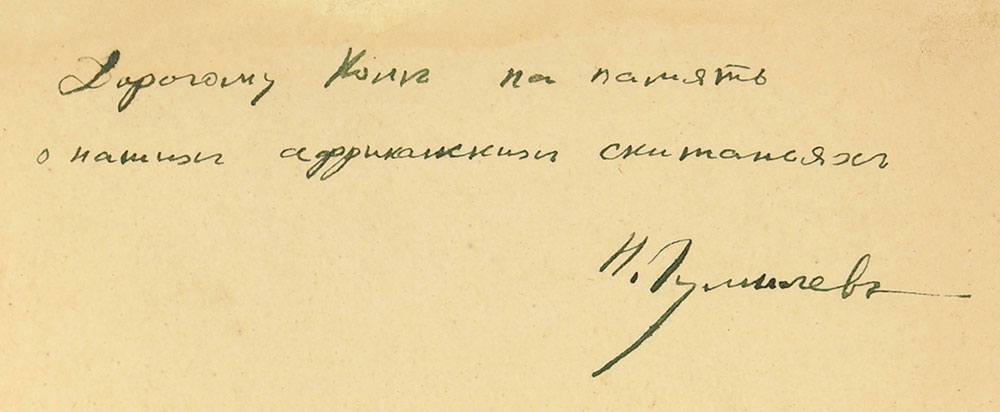 Дорогому Колѣ на память
о нашихъ африканскихъ скитаньяхъ
Н. Гумилевъ